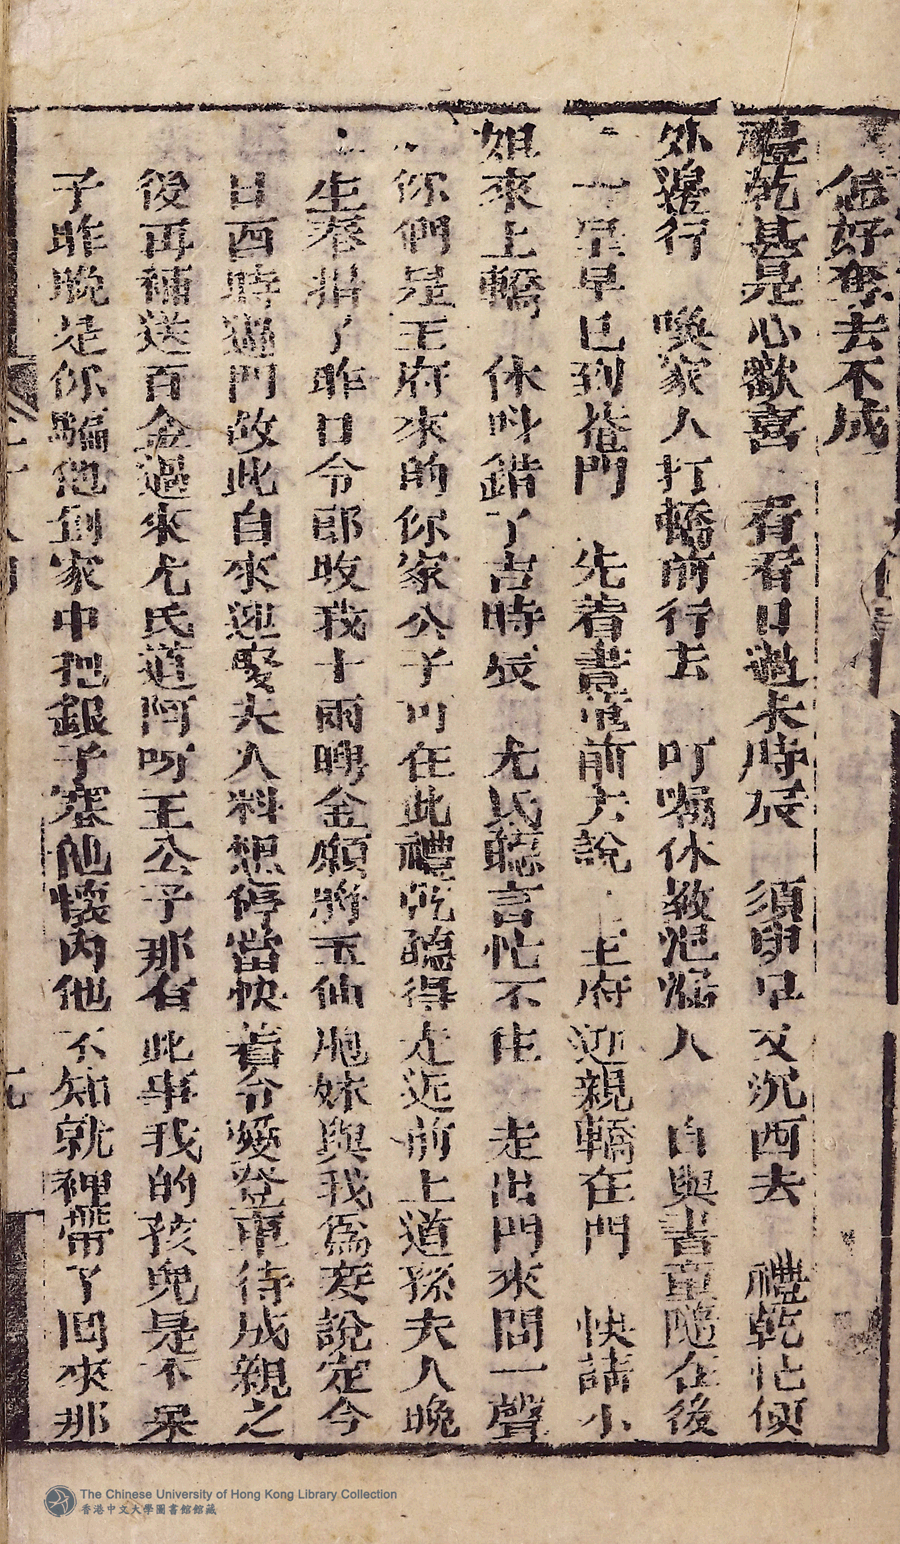 怎好奪去不成
禮乾甚是心歡喜　看看日過未時辰　須臾早又沉西去　禮乾忙傾
外邊行　喚家人打轎前行去　叮囑休教泄漏人　自與書童隨在後
一呈早已到菴門　先着書童前去說　王府迎親轎在門　快請小
姐來上轎　休叫錯了吉時辰　尤氏聽言忙不住　走出門來問一聲
你們是王府來的你家公子可在此禮乾聽得走近前上道孫夫人晚
生奉揖了昨日令郎收我十兩聘金願將玉仙胞妹與我為妾說定今
日酉時過門故此自來迎娶夫人料想停當快着令愛登車待成親之
後再補送百金過來尤氏道阿呵王公子那有此事我的孩兒是不呆
子昨晚是你騙他到家中把銀子塞他懷內他不知就裡帶了回來那
The Chinese University of Hong Kong Library Collection
香港中文大學圖書館館藏